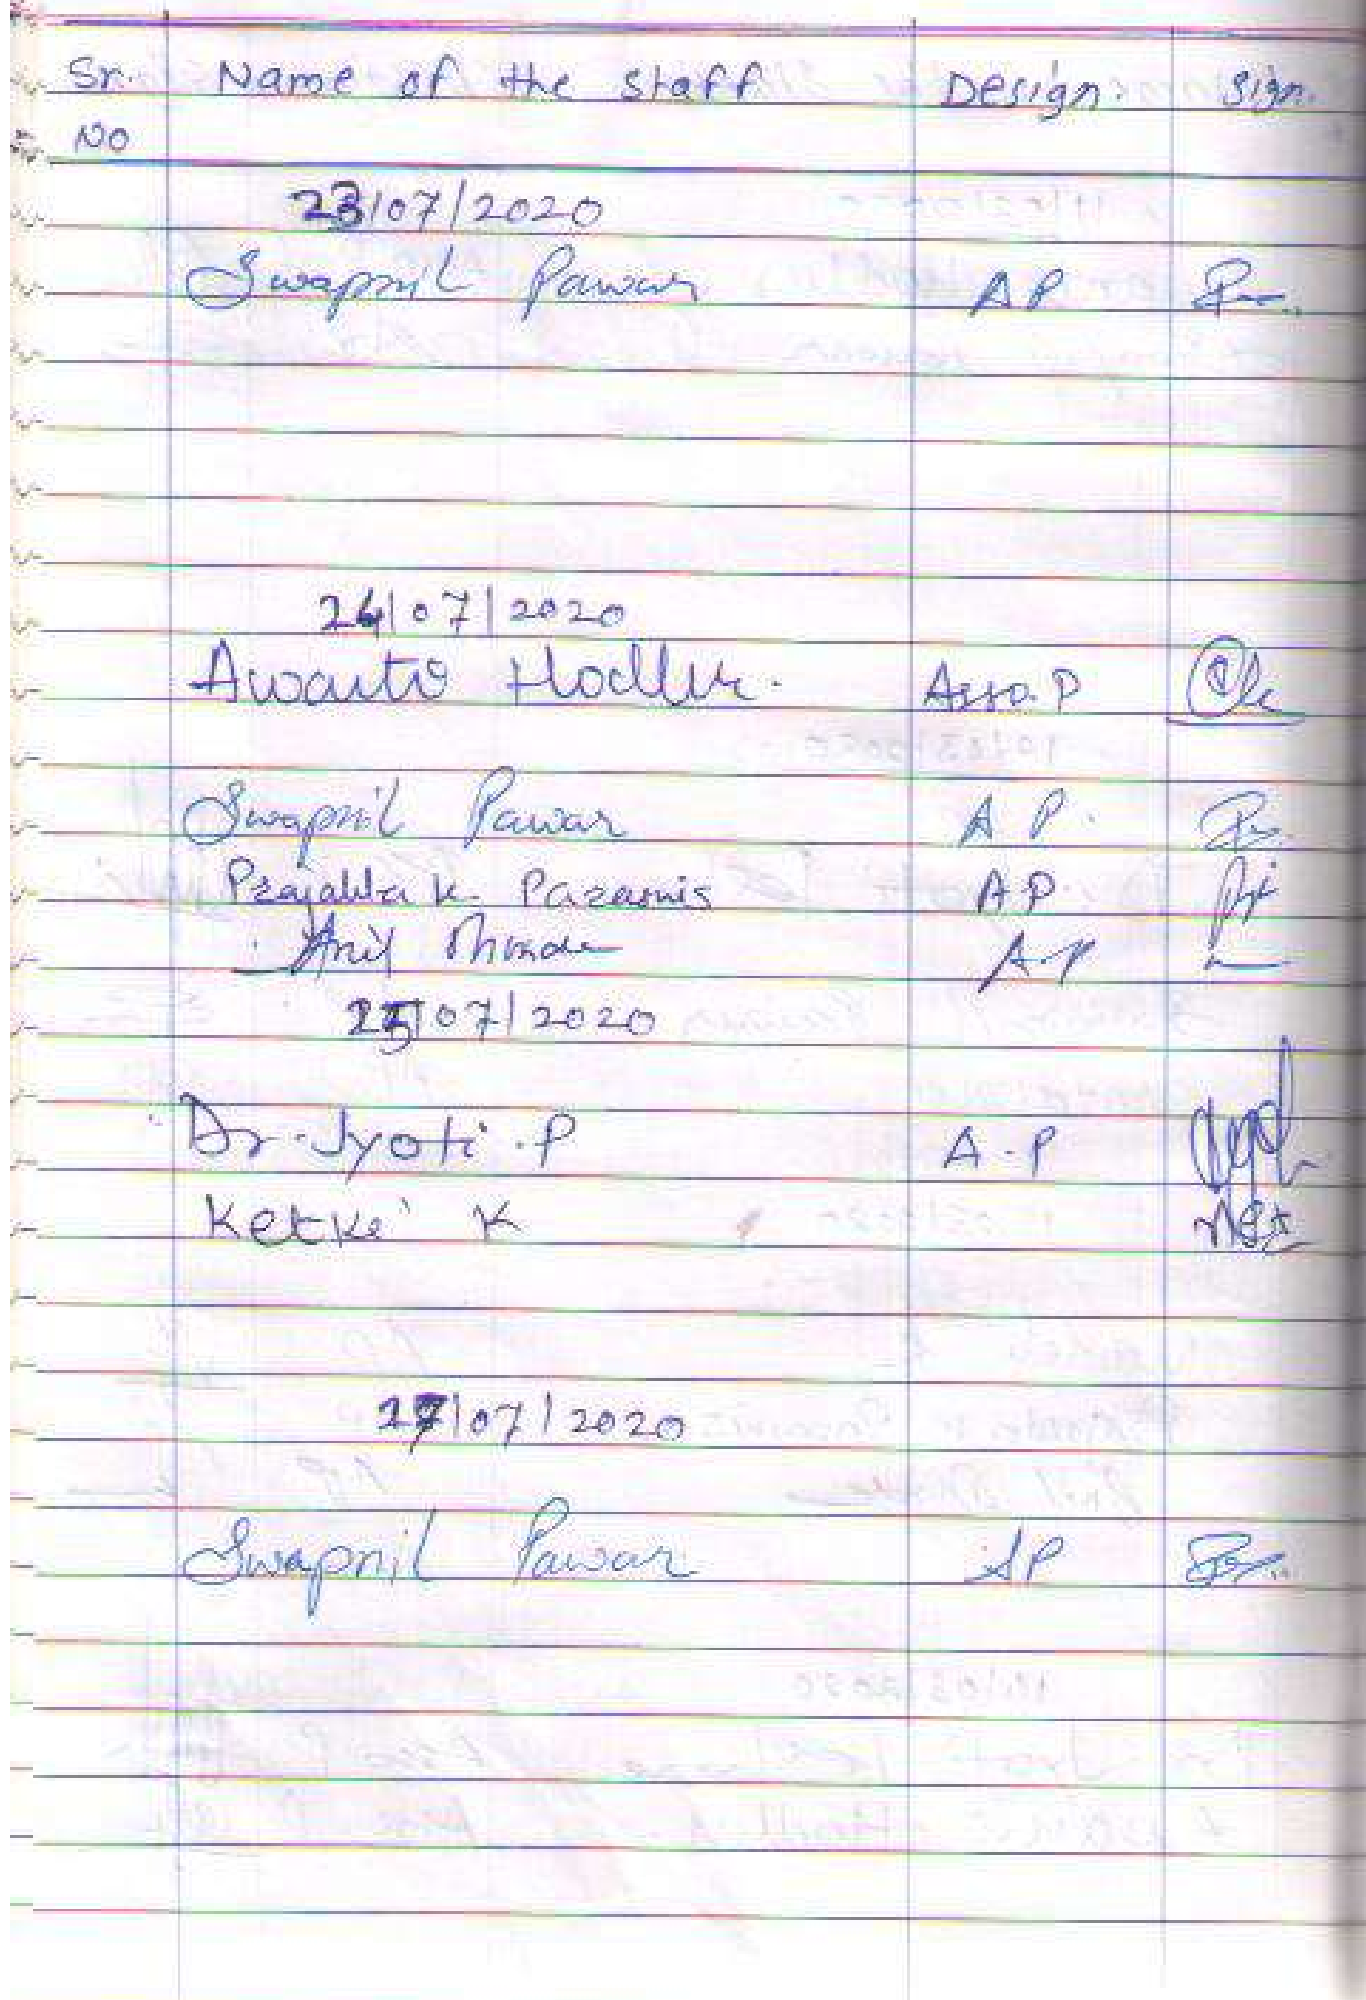 Sr. Name of the staff Design. Sign.
No
23/07/2020
Swapnil Pawar AP
24/07/2020
Asso. P
Swapnil Pawar A P.
Prajakta K. Paranis AP
Anil A.P
25/07/2020
Dr. Jyoti . P A . P
Ketki K
27/07/2020
Swapnil Pawar AP